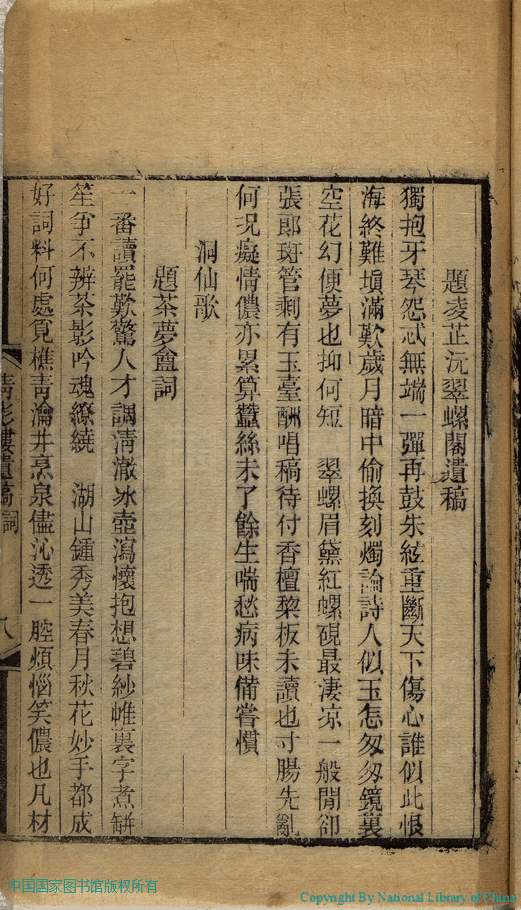 題凌芷沅翠螺閣遺稿
獨抱牙琴怨忒無端一彈再鼓朱絃重斷天下傷心誰似此恨
海終難塡滿歎歲月暗中偷換刻燭論詩人似玉怎匆匆鏡裏
空花幻便夢也抑何短　翠螺眉黛紅螺硯最淒凉一般閒卻
張郎斑管剩有玉臺酬唱稿待付香檀棃板未讀也寸腸先亂
何况癡情儂亦累算蠶絲未了餘生喘愁病味備嘗慣
洞仙歌
題茶夢盦詞
一番讀罷歎驚人才調淸澈冰壺瀉懷抱想碧紗帷裏字煮缾
笙爭不辨茶影吟魂繚繞　湖山鍾秀美春月秋花妙手都成
好詞料何處覓樵靑瀹井烹泉儘沁透一腔煩惱笑儂也凡材
遺稿詞
八
中国国家图书馆版权所有
Copyright By National Library of China